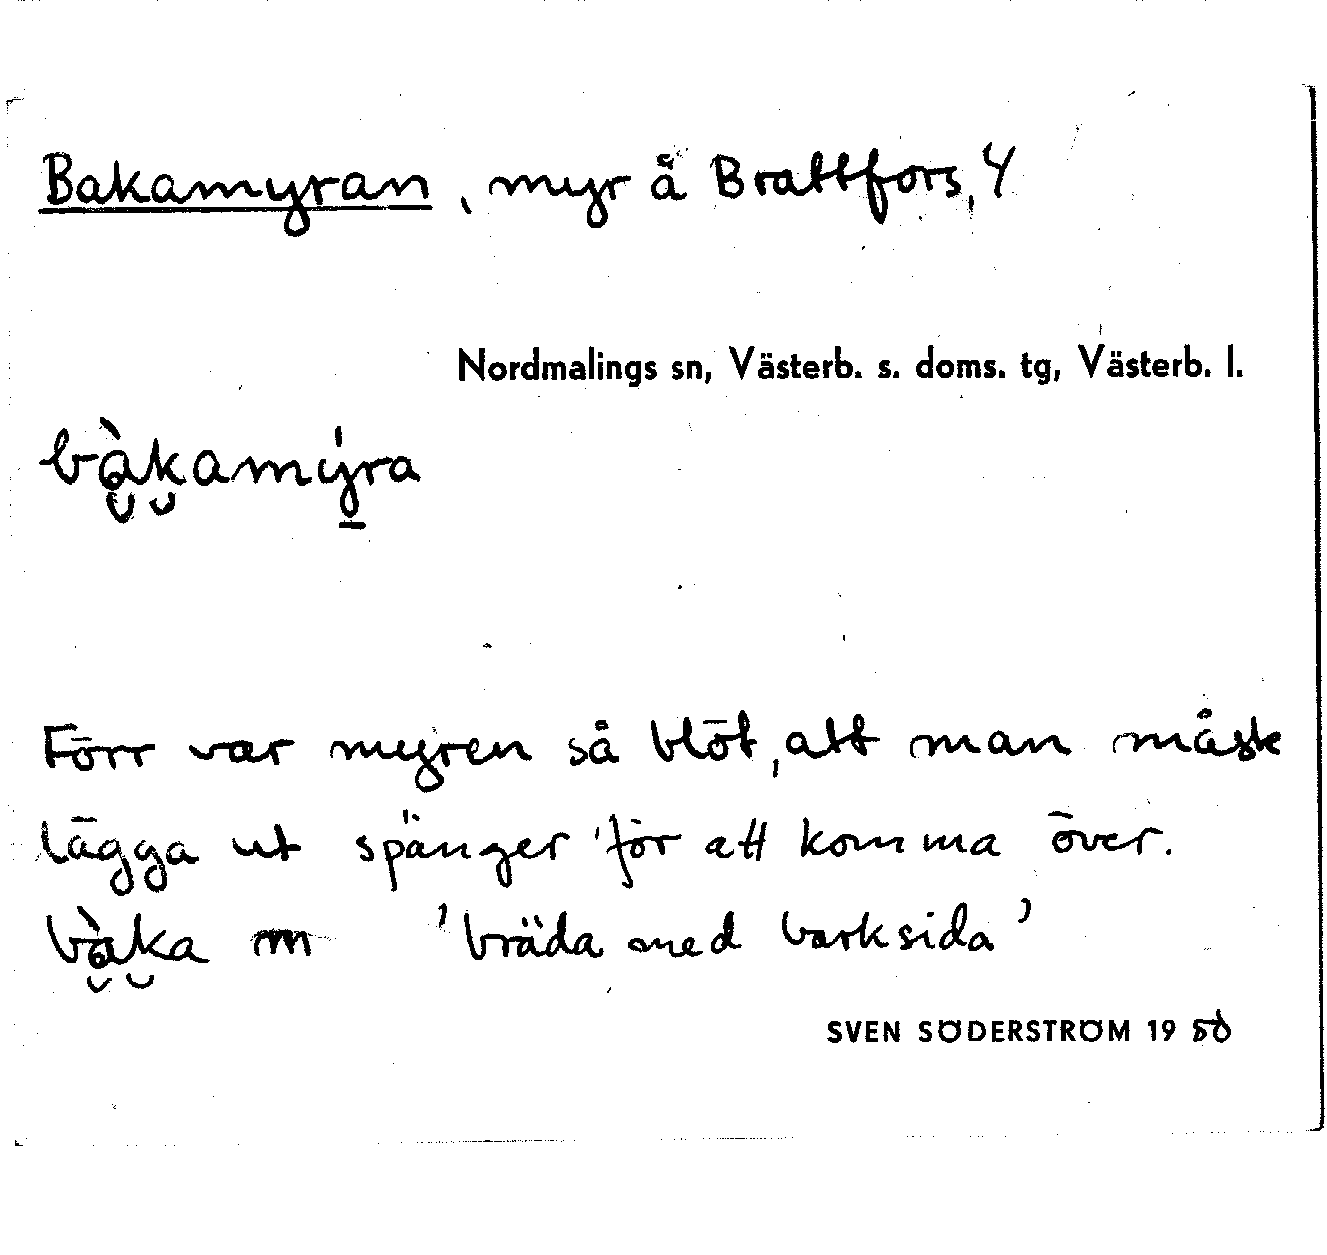 Bakamyran, myr å Brattfors, 4
Nordmalings sn, Västerb. s. doms. tg, Västerb. l.
bàkamýra
Förr var myren så blöt, att man måste
lägga ut spänger för att komma över.
bàka m 'bräda med barksida'
SVEN SÖDERSTRÖM 19